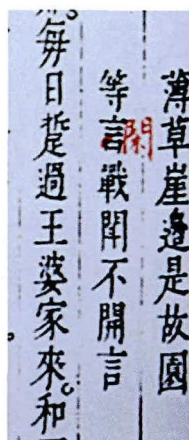 薄草崖邊是故園
等言戰閗不開言
閑
每日踅過王婆家來。和